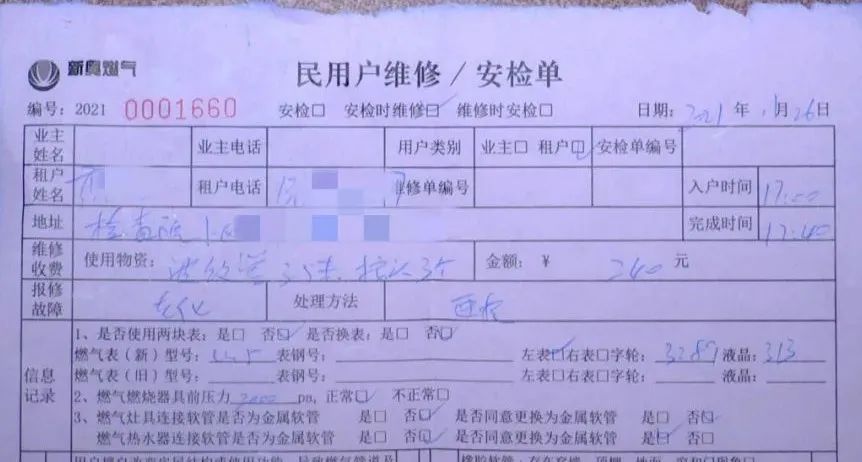 新奥燃气
民用户维修／安检单
编号：2021 0001660 安检□ 安检时维修☑ 维修时安检□ 日期：2021年11月26日
业主姓名 业主电话 用户类别 业主□ 租户☑ 安检单编号
租户姓名 租户电话 维修单编号 入户时间 17:00
地址 检查院 完成时间 17:40
维修收费 使用物资：波纹管3.5米，接头3个 金额：￥ 240 元
报修故障 老化 处理方法 更换
信息记录
1、是否使用两块表：是□ 否☑ 是否换表：是□ 否☑
燃气表（新）型号： 表钢号： 左表☑右表□字轮：3287 液晶：313
燃气表（旧）型号： 表钢号： 左表□右表□字轮： 液晶：
2、燃气燃烧器具前压力2000pa，正常☑ 不正常□
3、燃气灶具连接软管是否为金属软管 是□ 否☑ 是否同意更换为金属软管 是□ 否☑
燃气热水器连接软管是否为金属软管 是□ 否☑ 是否同意更换为金属软管 是☑ 否□